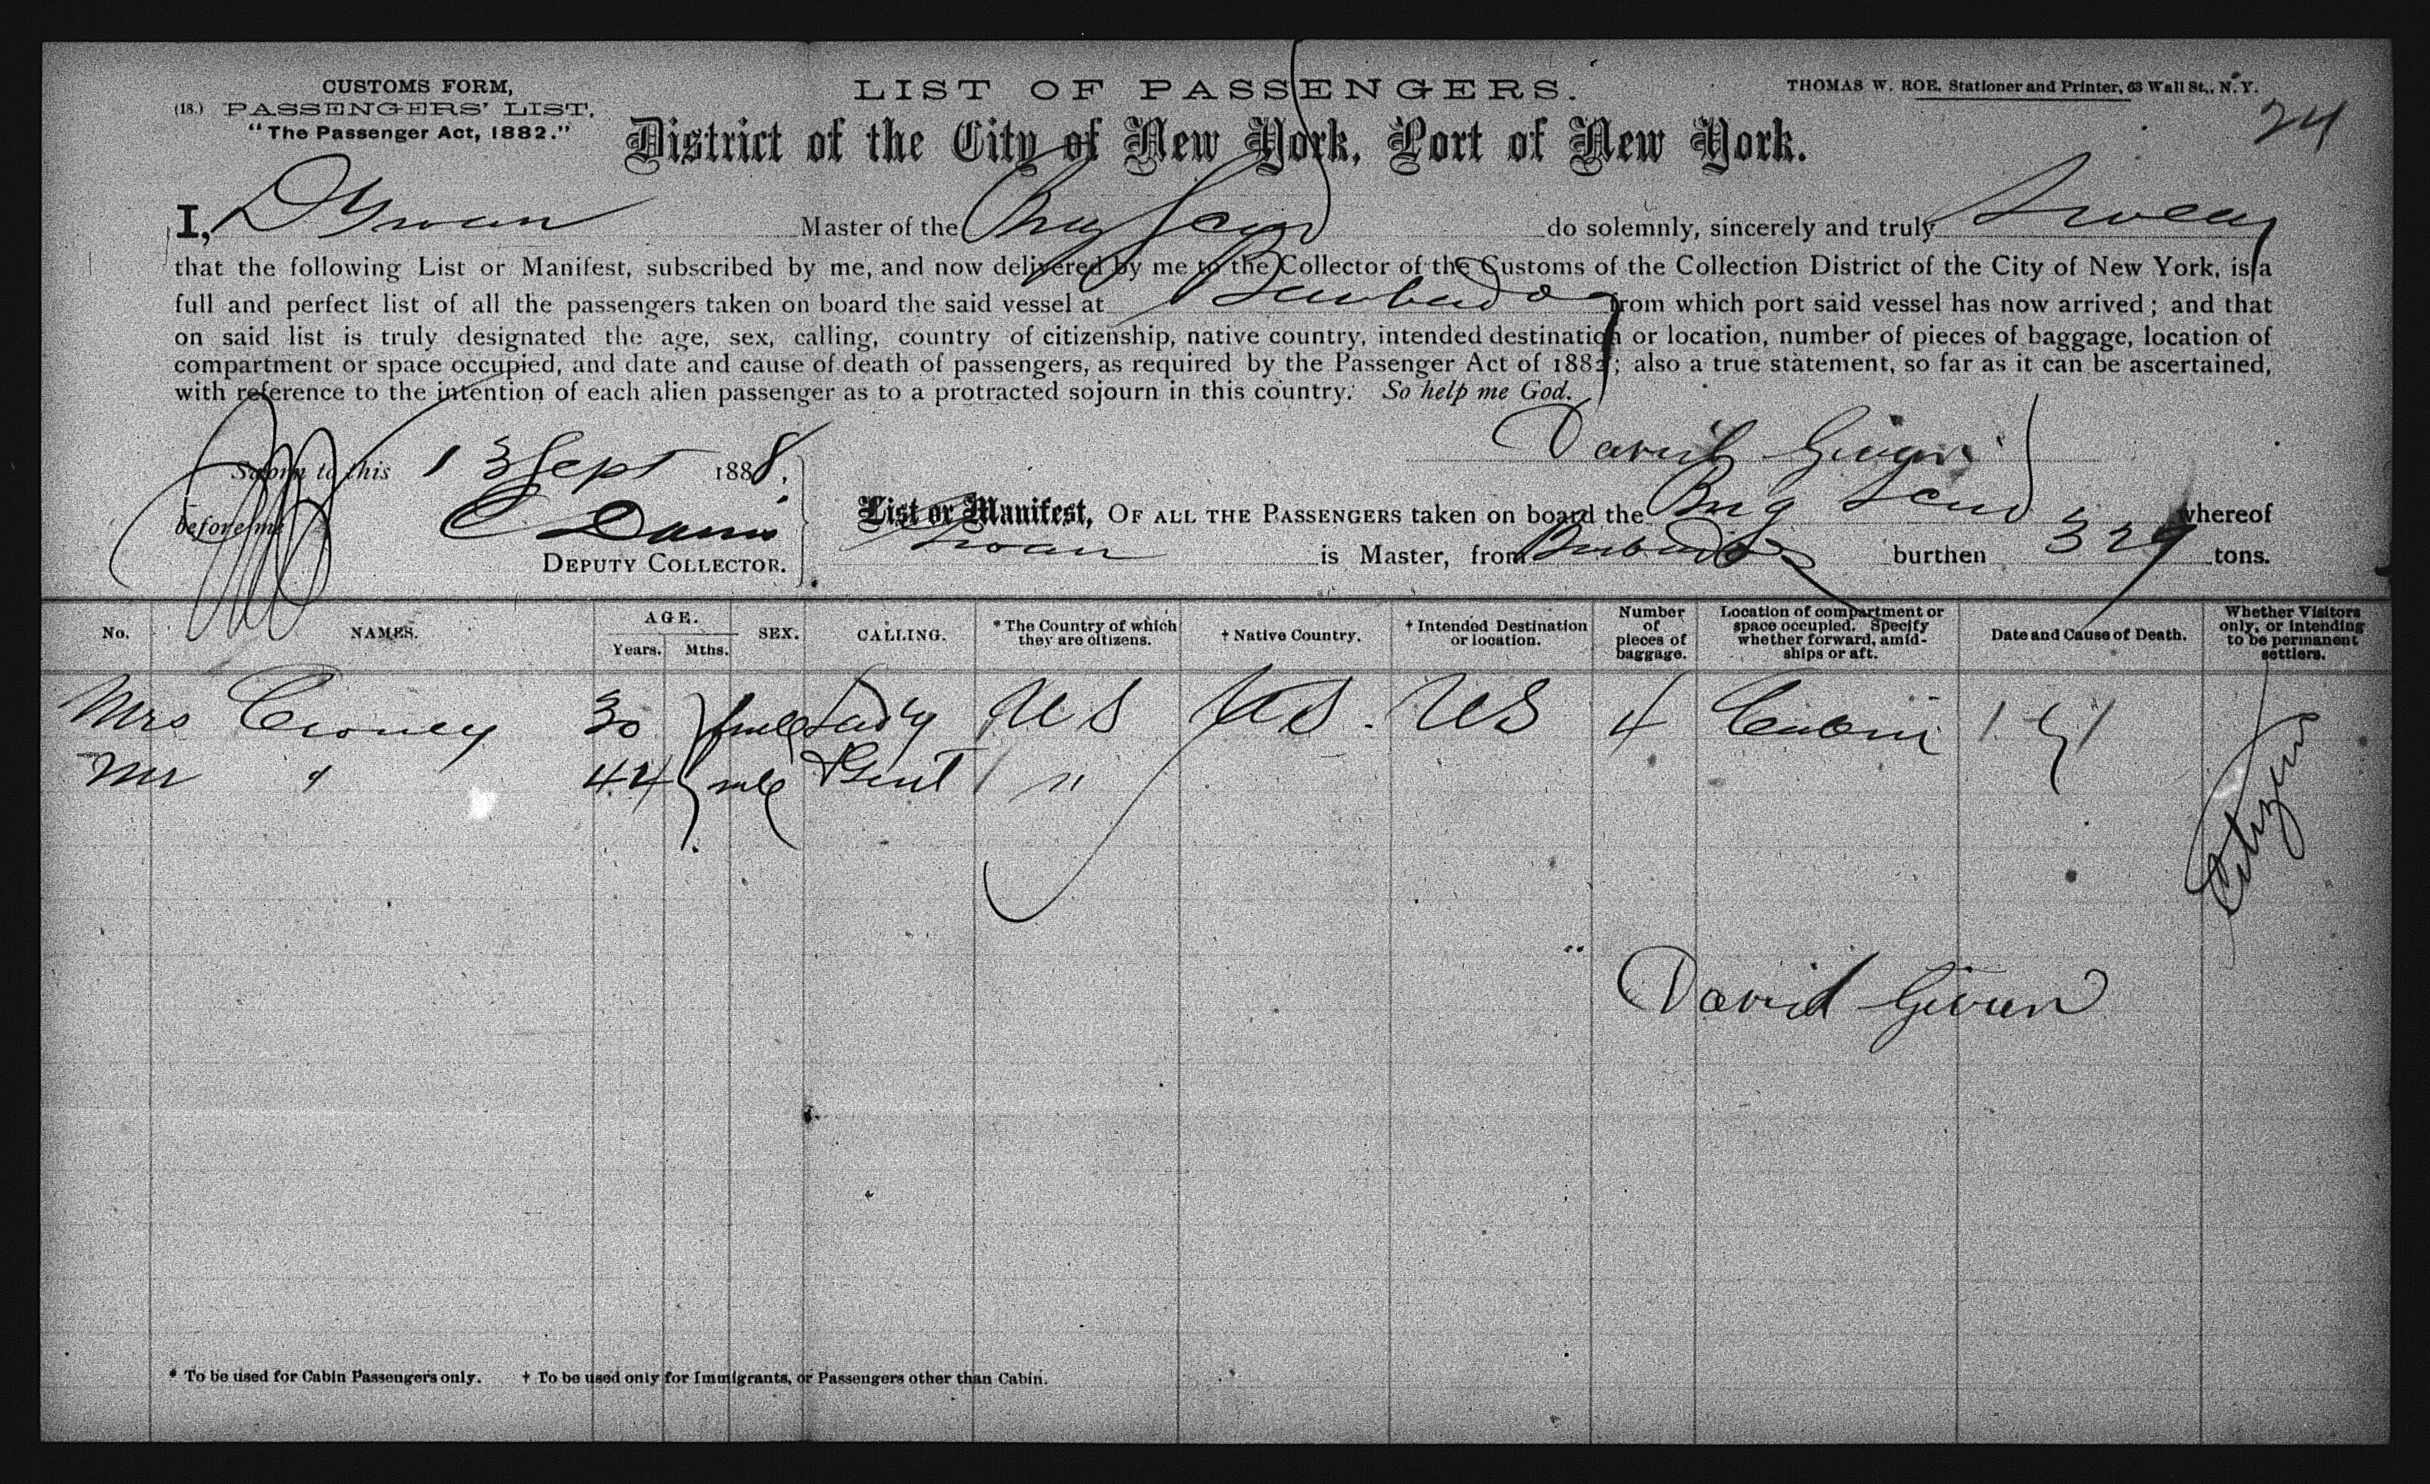 CUSTOMS FORM,
(18.) PASSENGERS' LIST.
"The Passenger Act, 1882."
LIST OF PASSENGERS.
THOMAS W. ROE, Stationer and Printer, 63 Wall St., N. Y.
24
District of the City of New York, Port of New York.
I, Master of the do solemnly, sincerely and truly swear
that the following List or Manifest, subscribed by me, and now delivered by me to the Collector of the Customs of the Collection District of the City of New York, is a
full and perfect list of all the passengers taken on board the said vessel at Barbados from which port said vessel has now arrived; and that
on said list is truly designated the age, sex, calling, country of citizenship, native country, intended destination or location, number of pieces of baggage, location of
compartment or space occupied, and date and cause of death of passengers, as required by the Passenger Act of 1882; also a true statement, so far as it can be ascertained,
with reference to the intention of each alien passenger as to a protracted sojourn in this country. So help me God.
David Givan
Sworn to this 13 Sept 1888.
before me
DEPUTY COLLECTOR.
List or Manifest, OF ALL THE PASSENGERS taken on board the Brig whereof
is Master, from Barbados burthen 329 tons.
No. NAMES. AGE. Years. Mths. SEX. CALLING. * The Country of which they are citizens. † Native Country. † Intended Destination or location. Number of pieces of baggage. Location of compartment or space occupied. Specify whether forward, amidships or aft. Date and Cause of Death. Whether Visitors only, or intending to be permanent settlers.
Mrs 30 fmle Lady US US. US 4 Cabin
Mr " 44 mle Gent "
Citizens
David Givan
* To be used for Cabin Passengers only. † To be used only for Immigrants, or Passengers other than Cabin.